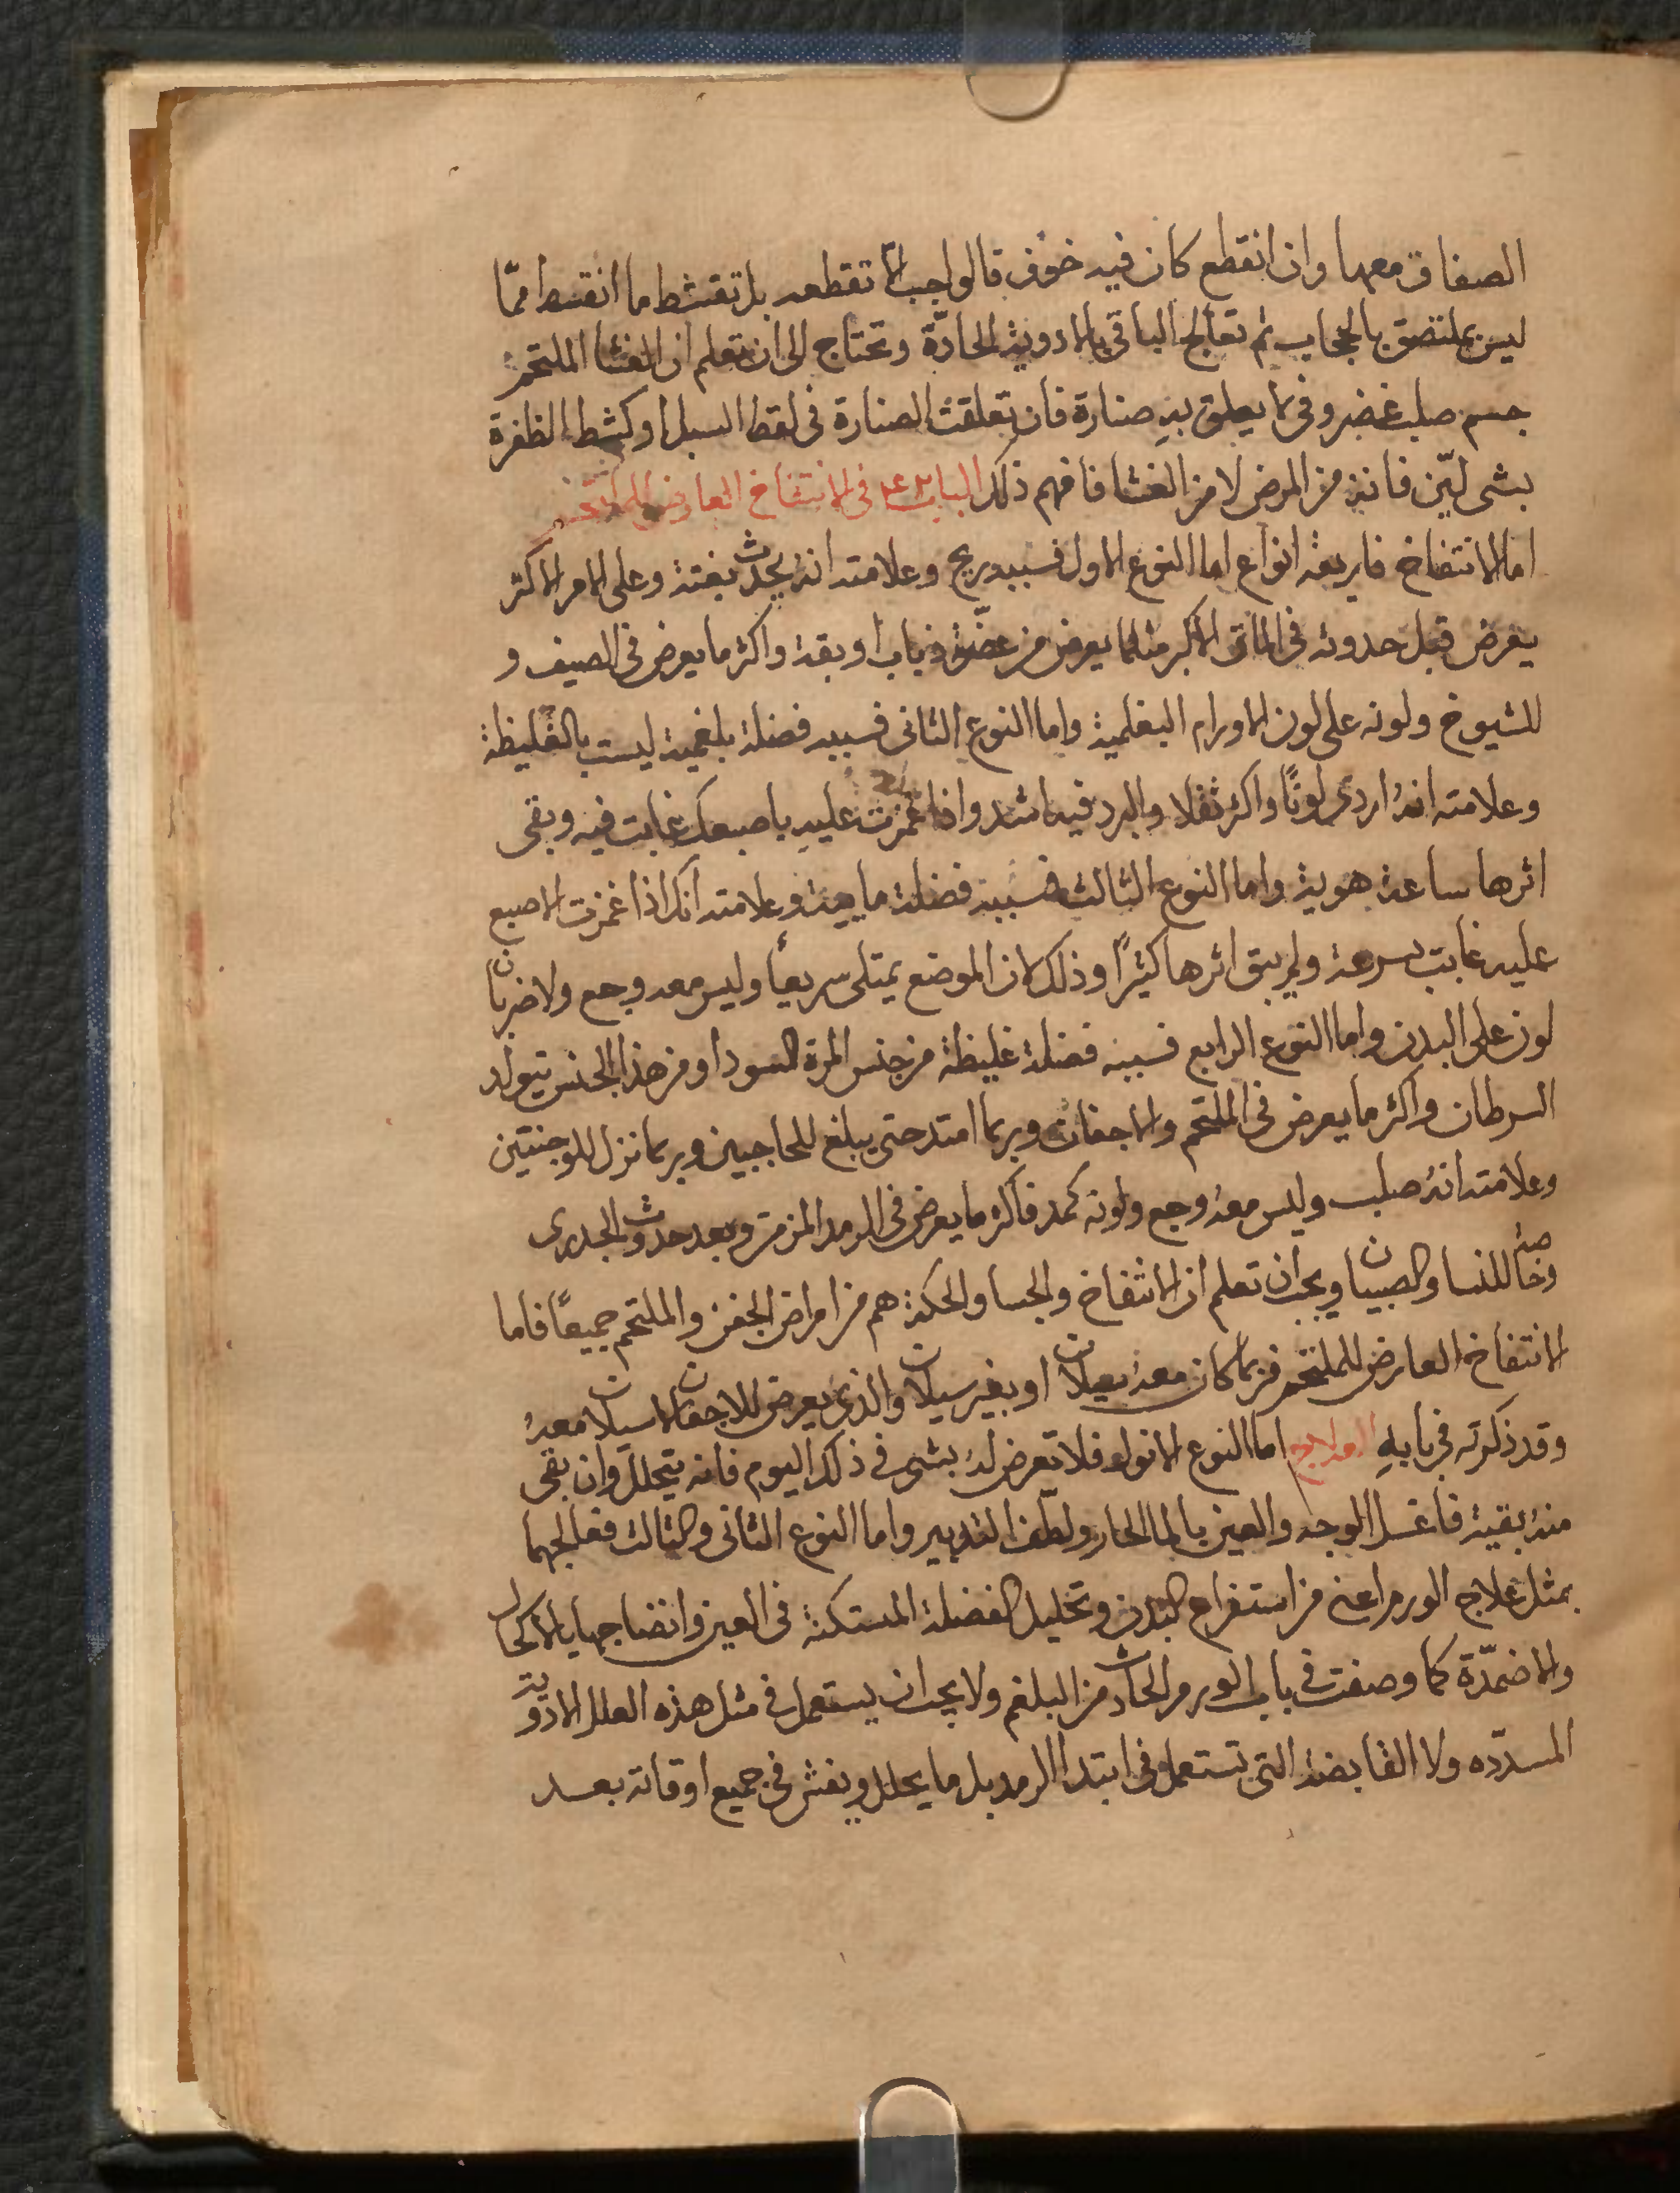 الصفاق معهما وان انقطع كان فيه خوف فالواجب الّا تقطعه بل تقشط ما انقشط ممّا
ليس بملتصق بالحجاب ثم تعالج الباقي بالادوية الحادّة وتحتاج الى ان تعلم ان الغشا الملتحم
جسم صلب غضروفي لا يعلق به صنارة فان تعلقت الصنارة في لقط السبل او كشط الظفرة
بشي ليّن فانه من المرض لا من الغشا فافهم ذلك الباب ٤٢ في الانتفاخ العارض للملتحم
اما الانتفاخ فاربعة انواع اما النوع الاول فسببه ريح وعلامته انه يحدث بغتة وعلى الامر الاكثر
يعرض قبل حدوثه في الماق الاكبر مثلما يعرض من عضّة ذباب او بقة واكثر ما يعرض في الصيف و
للشيوخ ولونه على لون الاورام البغلمية واما النوع الثاني فسببه فضلة بلغمية ليست بالغليظة
وعلامته انه اردى لونًا واكثر ثقلا والبرد فيه اشد واذا غمزت عليه باصبعك غابت فيه وبقى
اثرها ساعة هوية واما النوع الثالث فسببه فضلة ماييه وعلامته انك اذا غمزت الاصبع
عليه غابت بسرعة ولم يبق اثرها كثيرًا وذلك لان الموضع يمتلى سريعًا وليس معه وجع ولا ضربان
لون على البدن واما النوع الرابع فسببه فضلة غليظة من جنس المرة السودا ومن هذا الجنس يتولد
السرطان واكثر ما يعرض في الملتحم والاجفان وربما امتد حتى يبلغ للحاجبين وربما نزل للوجنتين
وعلامته انه صلب وليس معه وجع ولونه كمد فاكثر ما يعرض في الرمد المزمن وبعد حدوث الجدري
وخاصة للنسا والصبيان ويجب ان تعلم ان الانتفاخ والجسا والحكة هم من امراض الجفن والملتحم جميعًا فاما
الانتفاخ العارض للملتحم فربما كان معه سيلان او بغير سيلان والذي يعرض للاجفان لا سيلان معه
وقد ذكرته في بابهِ العلاج اما النوع الاول فلا تعرض له بشي في ذلك اليوم فانه يتحلل وان بقى
منه بقية فاغسل الوجه والعين بالما الحار ولطّف التدبير واما النوع الثاني والثالث فعالجهما
بمثل علاج الورم اعني من استفراج البدن وتحليل الفضلة المستكنة في العين وانضاجها بالاكحال
والاضمّدة كما وصفت في باب الورم الحادث من البلغم ولا يجب ان يستعمل في مثل هذه العلل الادوية
المسدّده ولا القابضة التي تستعمل في ابتدا الرمد بل ما يحلل ويفش في جميع اوقاته بعد